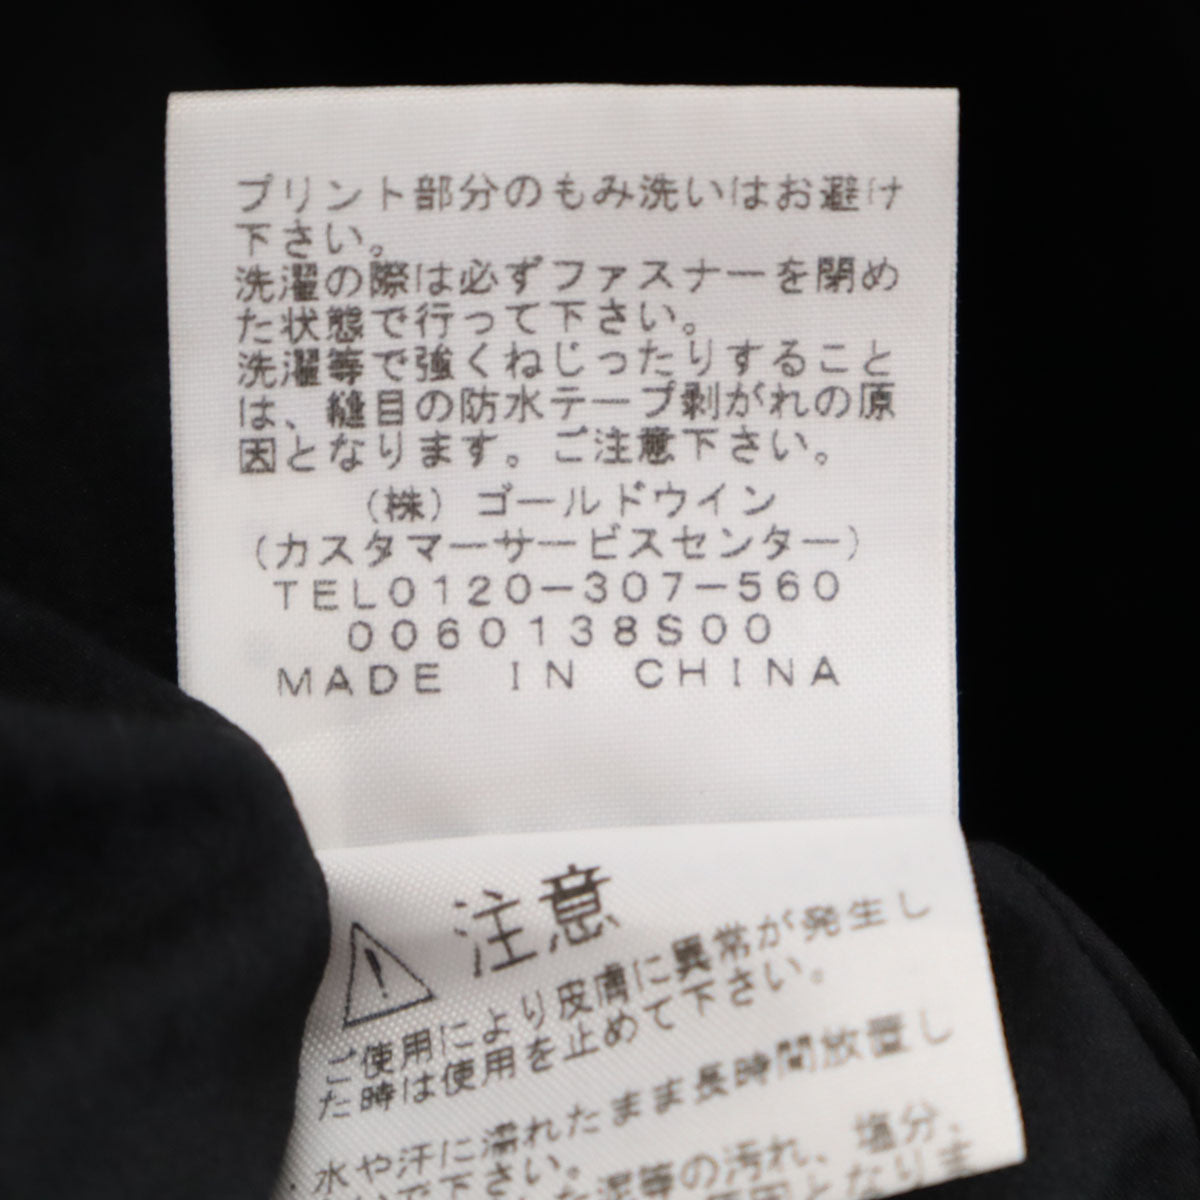 プリント部分のもみ洗いはお避け
下さい。
洗濯の際は必ずファスナーを閉め
た状態で行って下さい。
洗濯等で強くねじったりすること
は、縫目の防水テープ剥がれの原
因となります。ご注意下さい。
(株)ゴールドウイン
(カスタマーサービスセンター)
TEL0120-307-560
0060138S00
MADE IN CHINA
注意
ご使用により皮膚に異常が発生し
た時は使用を止めて下さい。
水や汗に濡れたまま長時間放置し
で下さい。
た泥等の汚れ、塩分、
原因となりま